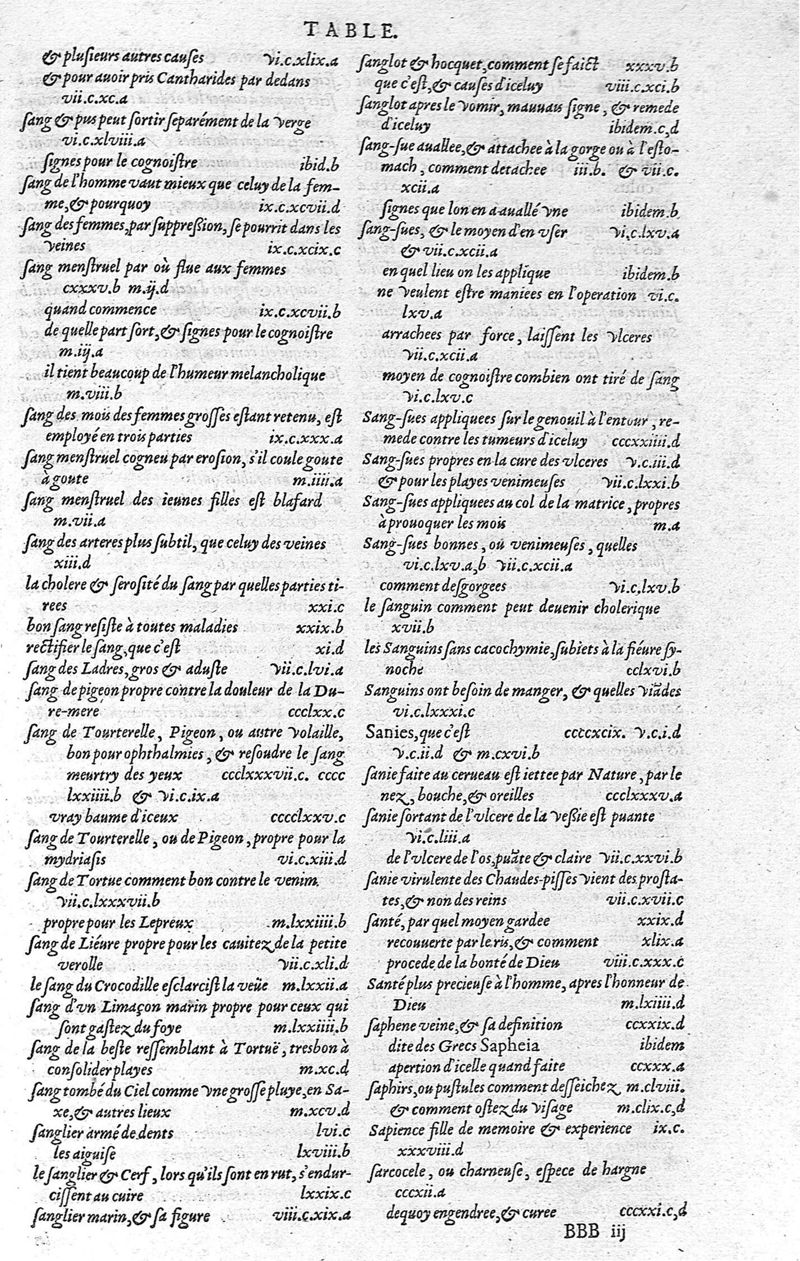 TABLE.
& plusieurs autres causes vi.c.xlix.a
& pour auoir pris Cantharides par dedans
vii.c.xc.a
sang & pus peut sortir separément de la verge
vi.c.xlviii.a
signes pour le cognoistre ibid.b
sang de l'homme vaut mieux que celuy de la fem-
me, & pourquoy ix.c.xcvii.d
sang des femmes, par suppression, se pourrit dans les
veines ix.c.xcix.c
sang menstruel par où flue aux femmes
cxxxv.b m.ij.d
quand commence ix.c.xcvii.b
de quelle part sort, & signes pour le cognoistre
m.iij.a
il tient beaucoup de l'humeur melancholique
m.viii.b
sang des mois des femmes grosses estant retenu, est
employé en trois parties ix.c.xxx.a
sang menstruel cogneu par erosion, s'il coule goute
à goute m.iiii.a
sang menstruel des ieunes filles est blafard
m.vii.a
sang des arteres plus subtil, que celuy des veines
xiii.d
la cholere & serosité du sang par quelles parties ti-
rees xxi.c
bon sang resiste à toutes maladies xxix.b
rectifier le sang, que c'est xi.d
sang des Ladres, gros & aduste vii.c.lvi.a
sang de pigeon propre contre la douleur de la Du-
re-mere ccclxx.c
sang de Tourterelle, Pigeon, ou autre volaille,
bon pour ophthalmies, & resoudre le sang
meurtry des yeux ccclxxxvii.c. cccc
lxxiiii.b & vi.c.ix.a
vray baume d'iceux cccclxxv.c
sang de Tourterelle, ou de Pigeon, propre pour la
mydriasis vi.c.xiii.d
sang de Tortue comment bon contre le venim.
vii.c.lxxxvii.b
propre pour les Lepreux m.lxxiiii.b
sang de Liéure propre pour les cauitez de la petite
verolle vii.c.xli.d
le sang du Crocodille esclarcist la veüe m.lxxii.a
sang d'vn Limaçon marin propre pour ceux qui
sont gastez du foye m.lxxiiii.b
sang de la beste ressemblant à Tortuë, tresbon à
consolider playes m.xc.d
sang tombé du Ciel comme vne grosse pluye, en Sa-
xe, & autres lieux m.xcv.d
sanglier armé de dents lvi.c
les aiguise lxviii.b
le sanglier & Cerf, lors qu'ils sont en rut, s'endur-
cissent au cuire lxxix.c
sanglier marin, & sa figure viii.c.xix.a
sanglot & hocquet, comment se faict xxxv.b
que c'est, & causes d'iceluy viii.c.xci.b
sanglot apres le vomir, mauuais signe, & remede
d'iceluy ibidem.c,d
sang-sue auallee, & attachee à la gorge ou à l'esto-
mach, comment detachee iii.b. & vii.c.
xcii.a
signes que lon en a auallé vne ibidem.b
sang-sues, & le moyen d'en vser vi.c.lxv.a
& vii.c.xcii.a
en quel lieu on les applique ibidem.b
ne veulent estre maniees en l'operation vi.c.
lxv.a
arrachees par force, laissent les vlceres
vii.c.xcii.a
moyen de cognoistre combien ont tiré de sang
vi.c.lxv.c
Sang-sues appliquees sur le genouil à l'entour, re-
mede contre les tumeurs d'iceluy cccxxiiii.d
Sang-sues propres en la cure des vlceres v.c.iii.d
& pour les playes venimeuses vii.c.lxxi.b
Sang-sues appliquees au col de la matrice, propres
à prouoquer les mois m.a
Sang-sues bonnes, ou venimeuses, quelles
vi.c.lxv.a,b vii.c.xcii.a
comment desgorgees vi.c.lxv.b
le sanguin comment peut deuenir cholerique
xvii.b
les Sanguins sans cacochymie, subiets à la fiéure sy-
noche cclxvi.b
Sanguins ont besoin de manger, & quelles viādes
vi.c.lxxxi.c
Sanies, que c'est ccccxcix. v.c.i.d
v.c.ii.d & m.cxvi.b
sanie faite au cerueau est iettee par Nature, par le
nez, bouche, & oreilles ccclxxxv.a
sanie sortant de l'vlcere de la vessie est puante
vi.c.liii.a
de l'vlcere de l'os, puāte & claire vii.c.xxvi.b
sanie virulente des Chaudes-pisses vient des prosta-
tes, & non des reins vii.c.xvii.c
santé, par quel moyen gardee xxix.d
recouuerte par le ris, & comment xlix.a
procede de la bonté de Dieu viii.c.xxx.c
Santé plus precieuse à l'homme, apres l'honneur de
Dieu m.lxiiii.d
saphene veine, & sa definition ccxxix.d
dite des Grecs Sapheia ibidem
apertion d'icelle quand faite ccxxx.a
saphirs, ou pustules comment desseichez m.clviii.
& comment ostez du visage m.clix.c,d
Sapience fille de memoire & experience ix.c.
xxxviii.d
sarcocele, ou charneuse, espece de hargne
cccxii.a
dequoy engendree, & curee cccxxi.c,d
BBB iij